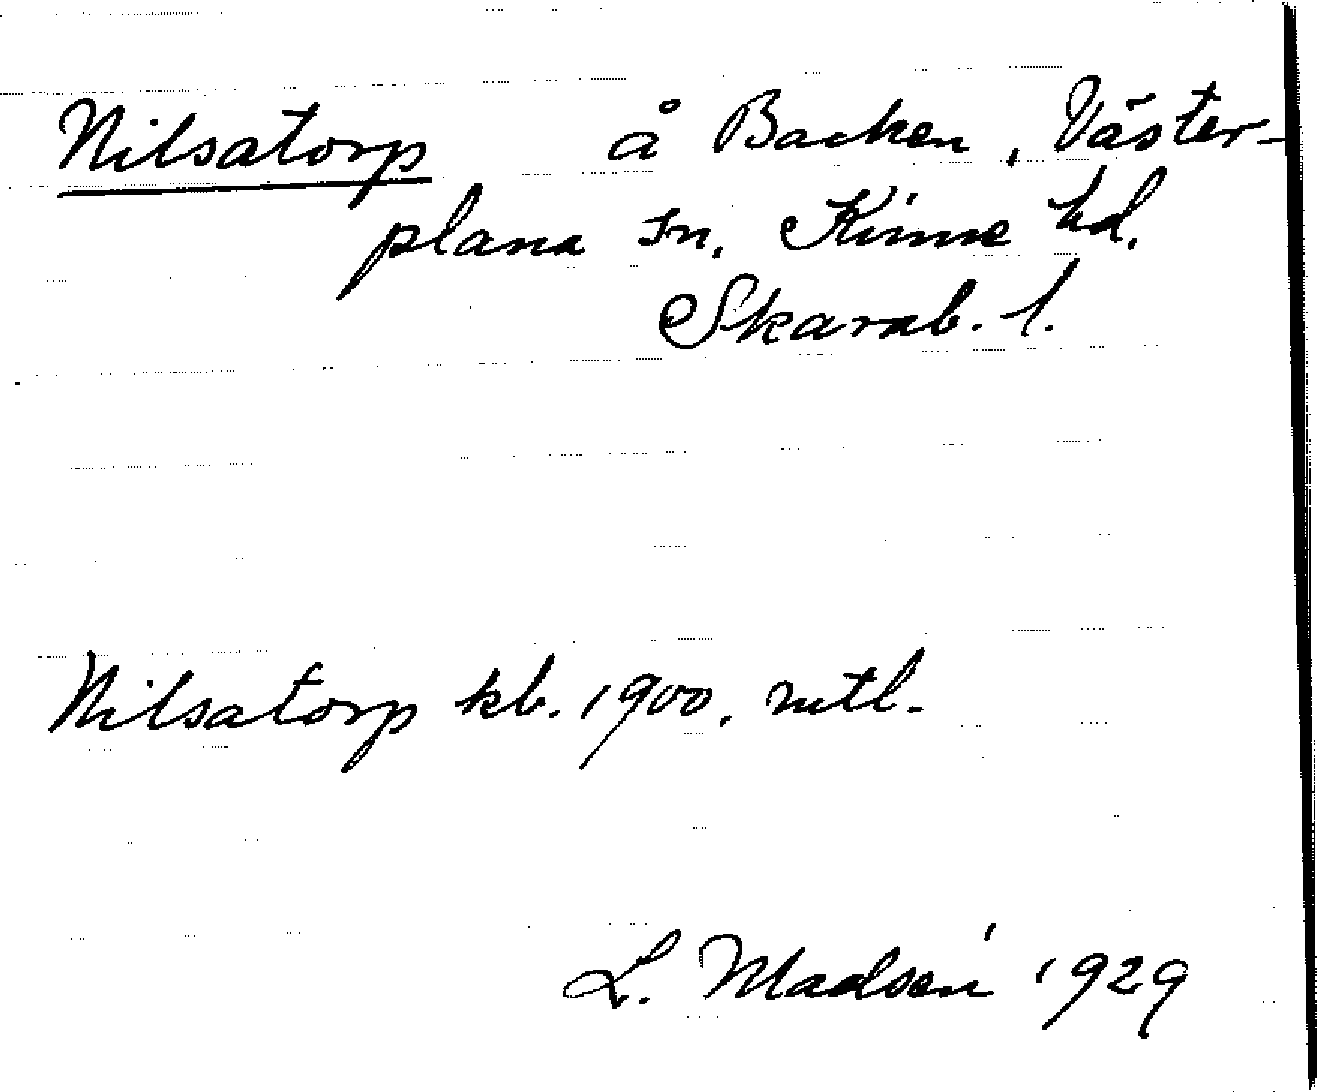 Nilsatorp å Backen, Väster-
plana sn, Kinne hd.
Skarab. l.
Nilsatorp kb. 1900, mtl.
L. Madsén 1929